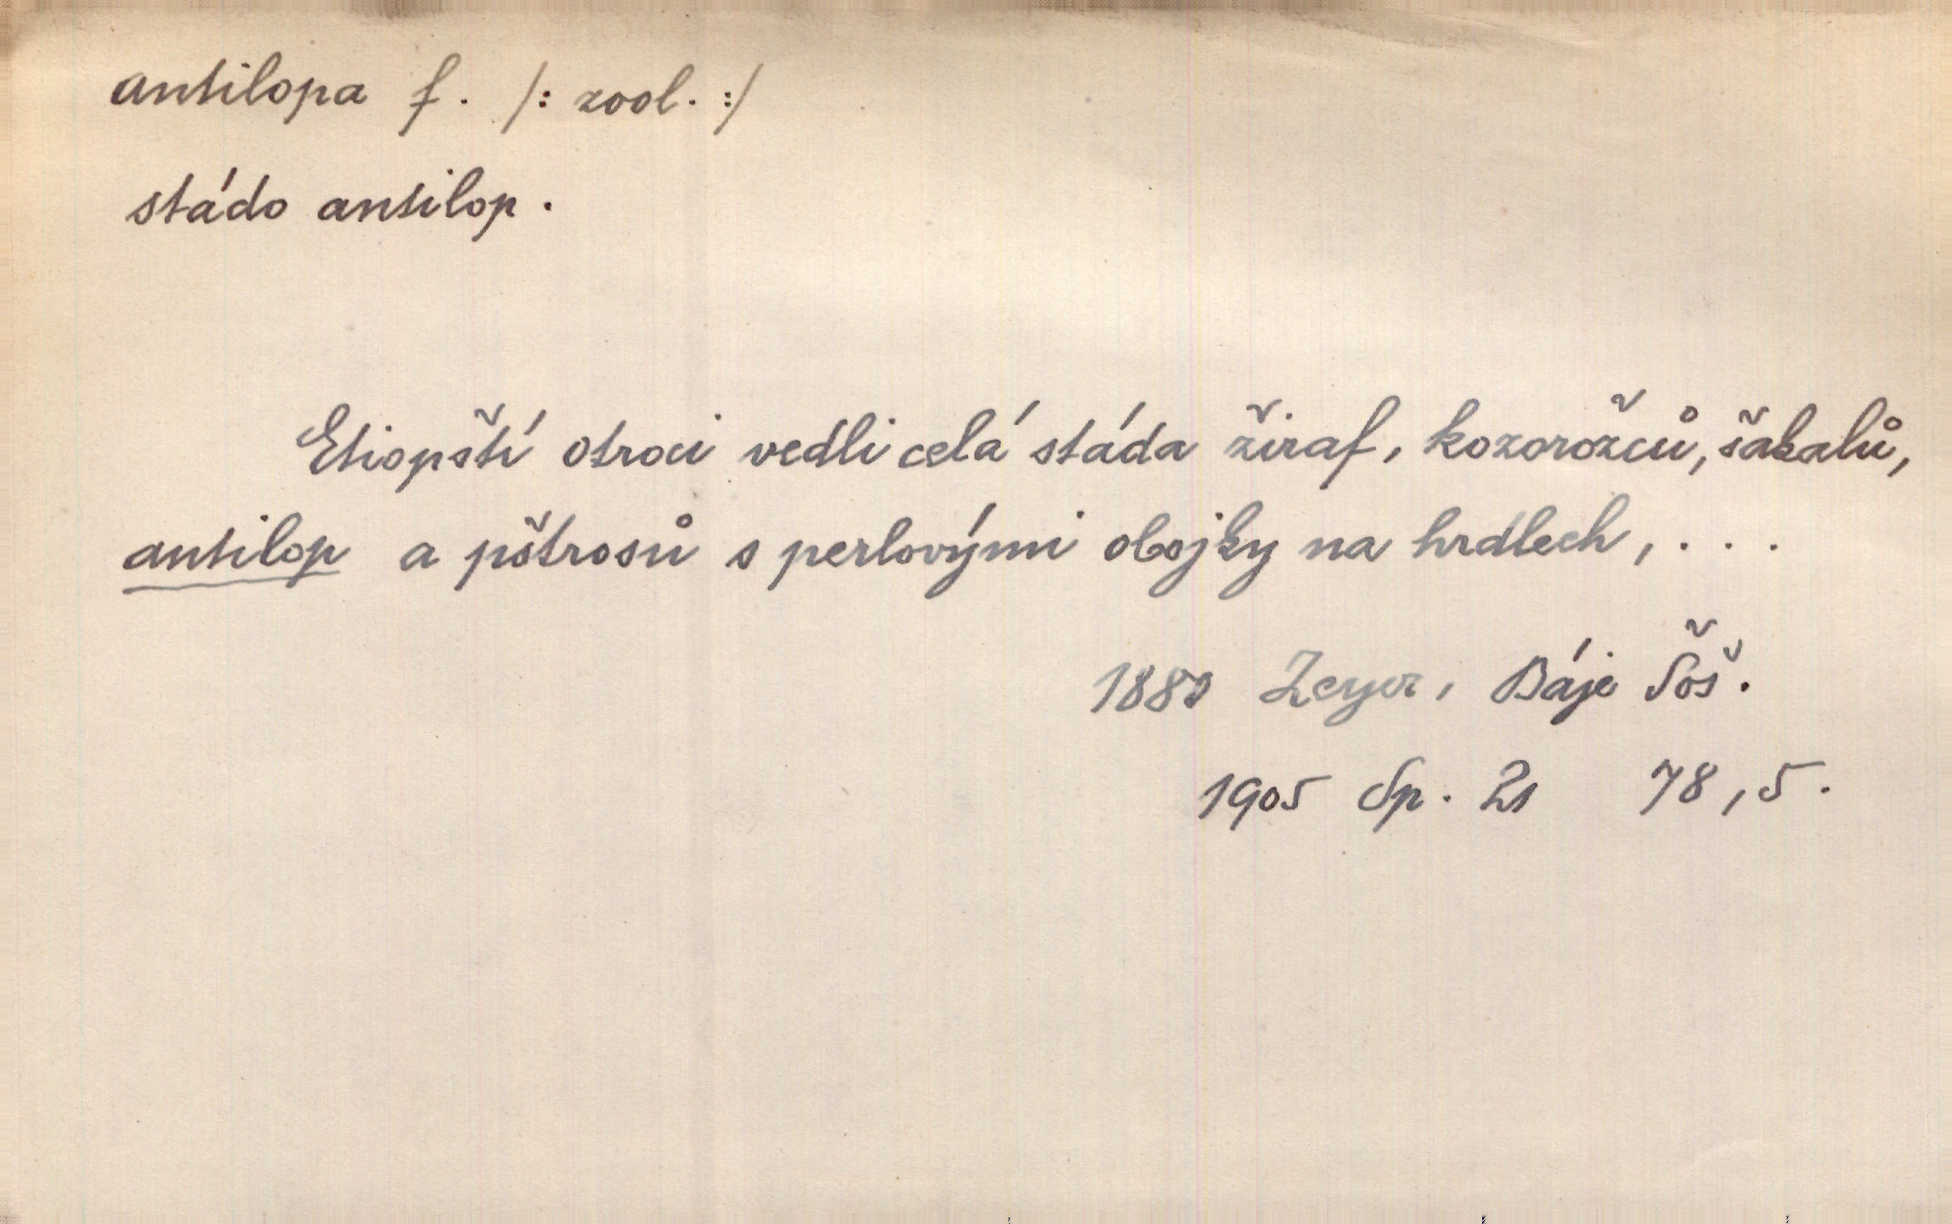 antilopa f. /: zool. :/
stádo antilop.
Etiopští otroci vedli celá stáda žiraf, kozorožců, šakalů,
antilop a pštrosů s perlovými obojky na hrdlech, . . .
Zeyer, Báje Šoš.
1905 Sp. 21 78,5.